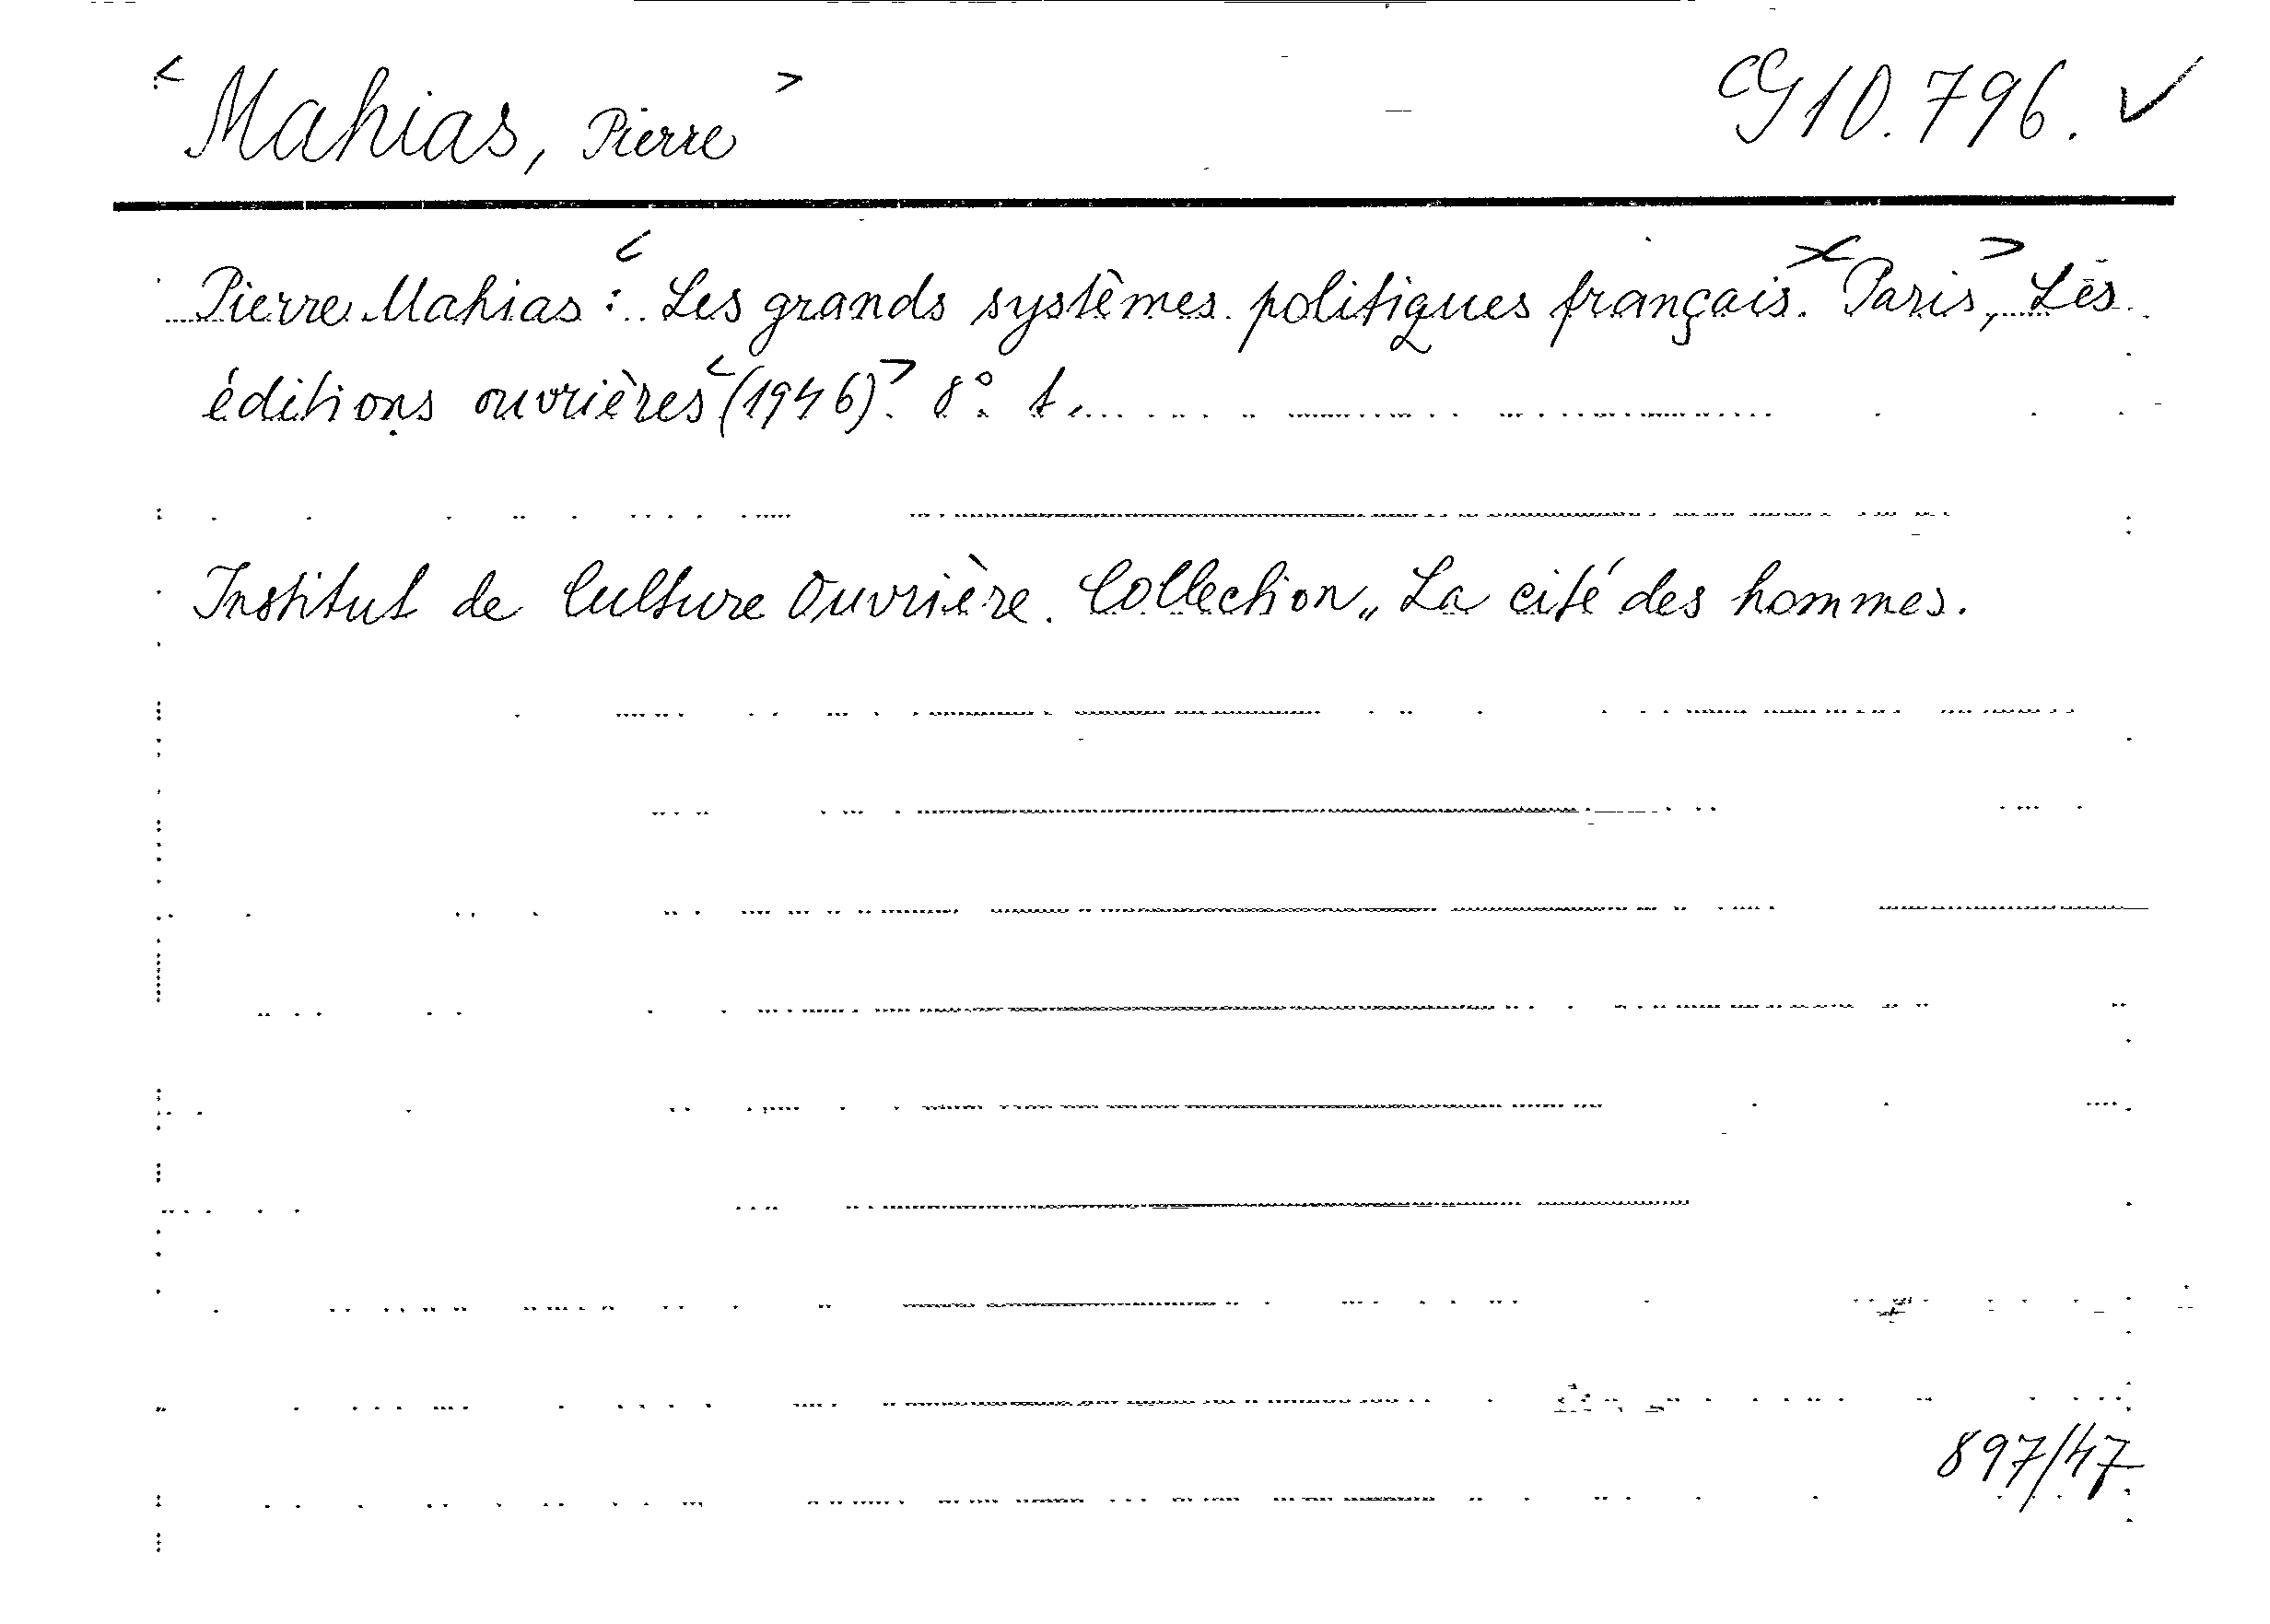 < Mahias, Pierre >
CG 10.796. ✓
Pierre Mahias: < Les grands systèmes politiques français. >< Paris, > Les
éditions ouvrières < (1946). > 8°.
Institut de Culture Ouvrière. Collection „La cité des hommes.
897/47